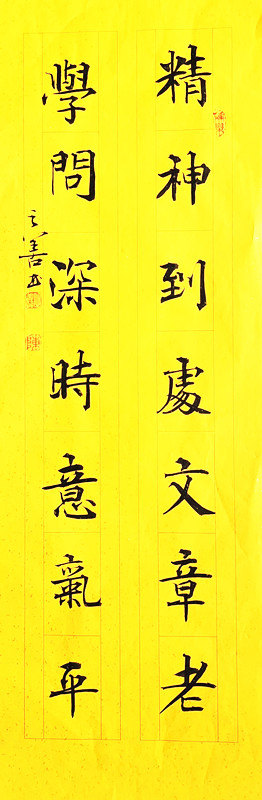 精神到處文章老
學問深時意氣平
之善书